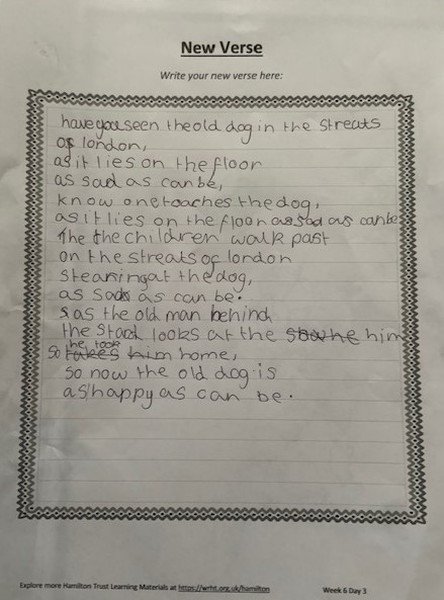 New Verse
Write your new verse here:
have you seen the old dog in the streats
of london,
as it lies on the floor
as sad as can be,
know one toaches the dog,
as it lies on the floor as sad as can be
The the children walk past
on the streats of london
stearing at the dog,
as sad as can be.
s as the old man behind
the stad looks at the him
he took
so takes him home,
so now the old dog is
as happy as can be.
Explore more Hamilton Trust Learning Materials at https://wrht.org.uk/hamilton Week 6 Day 3